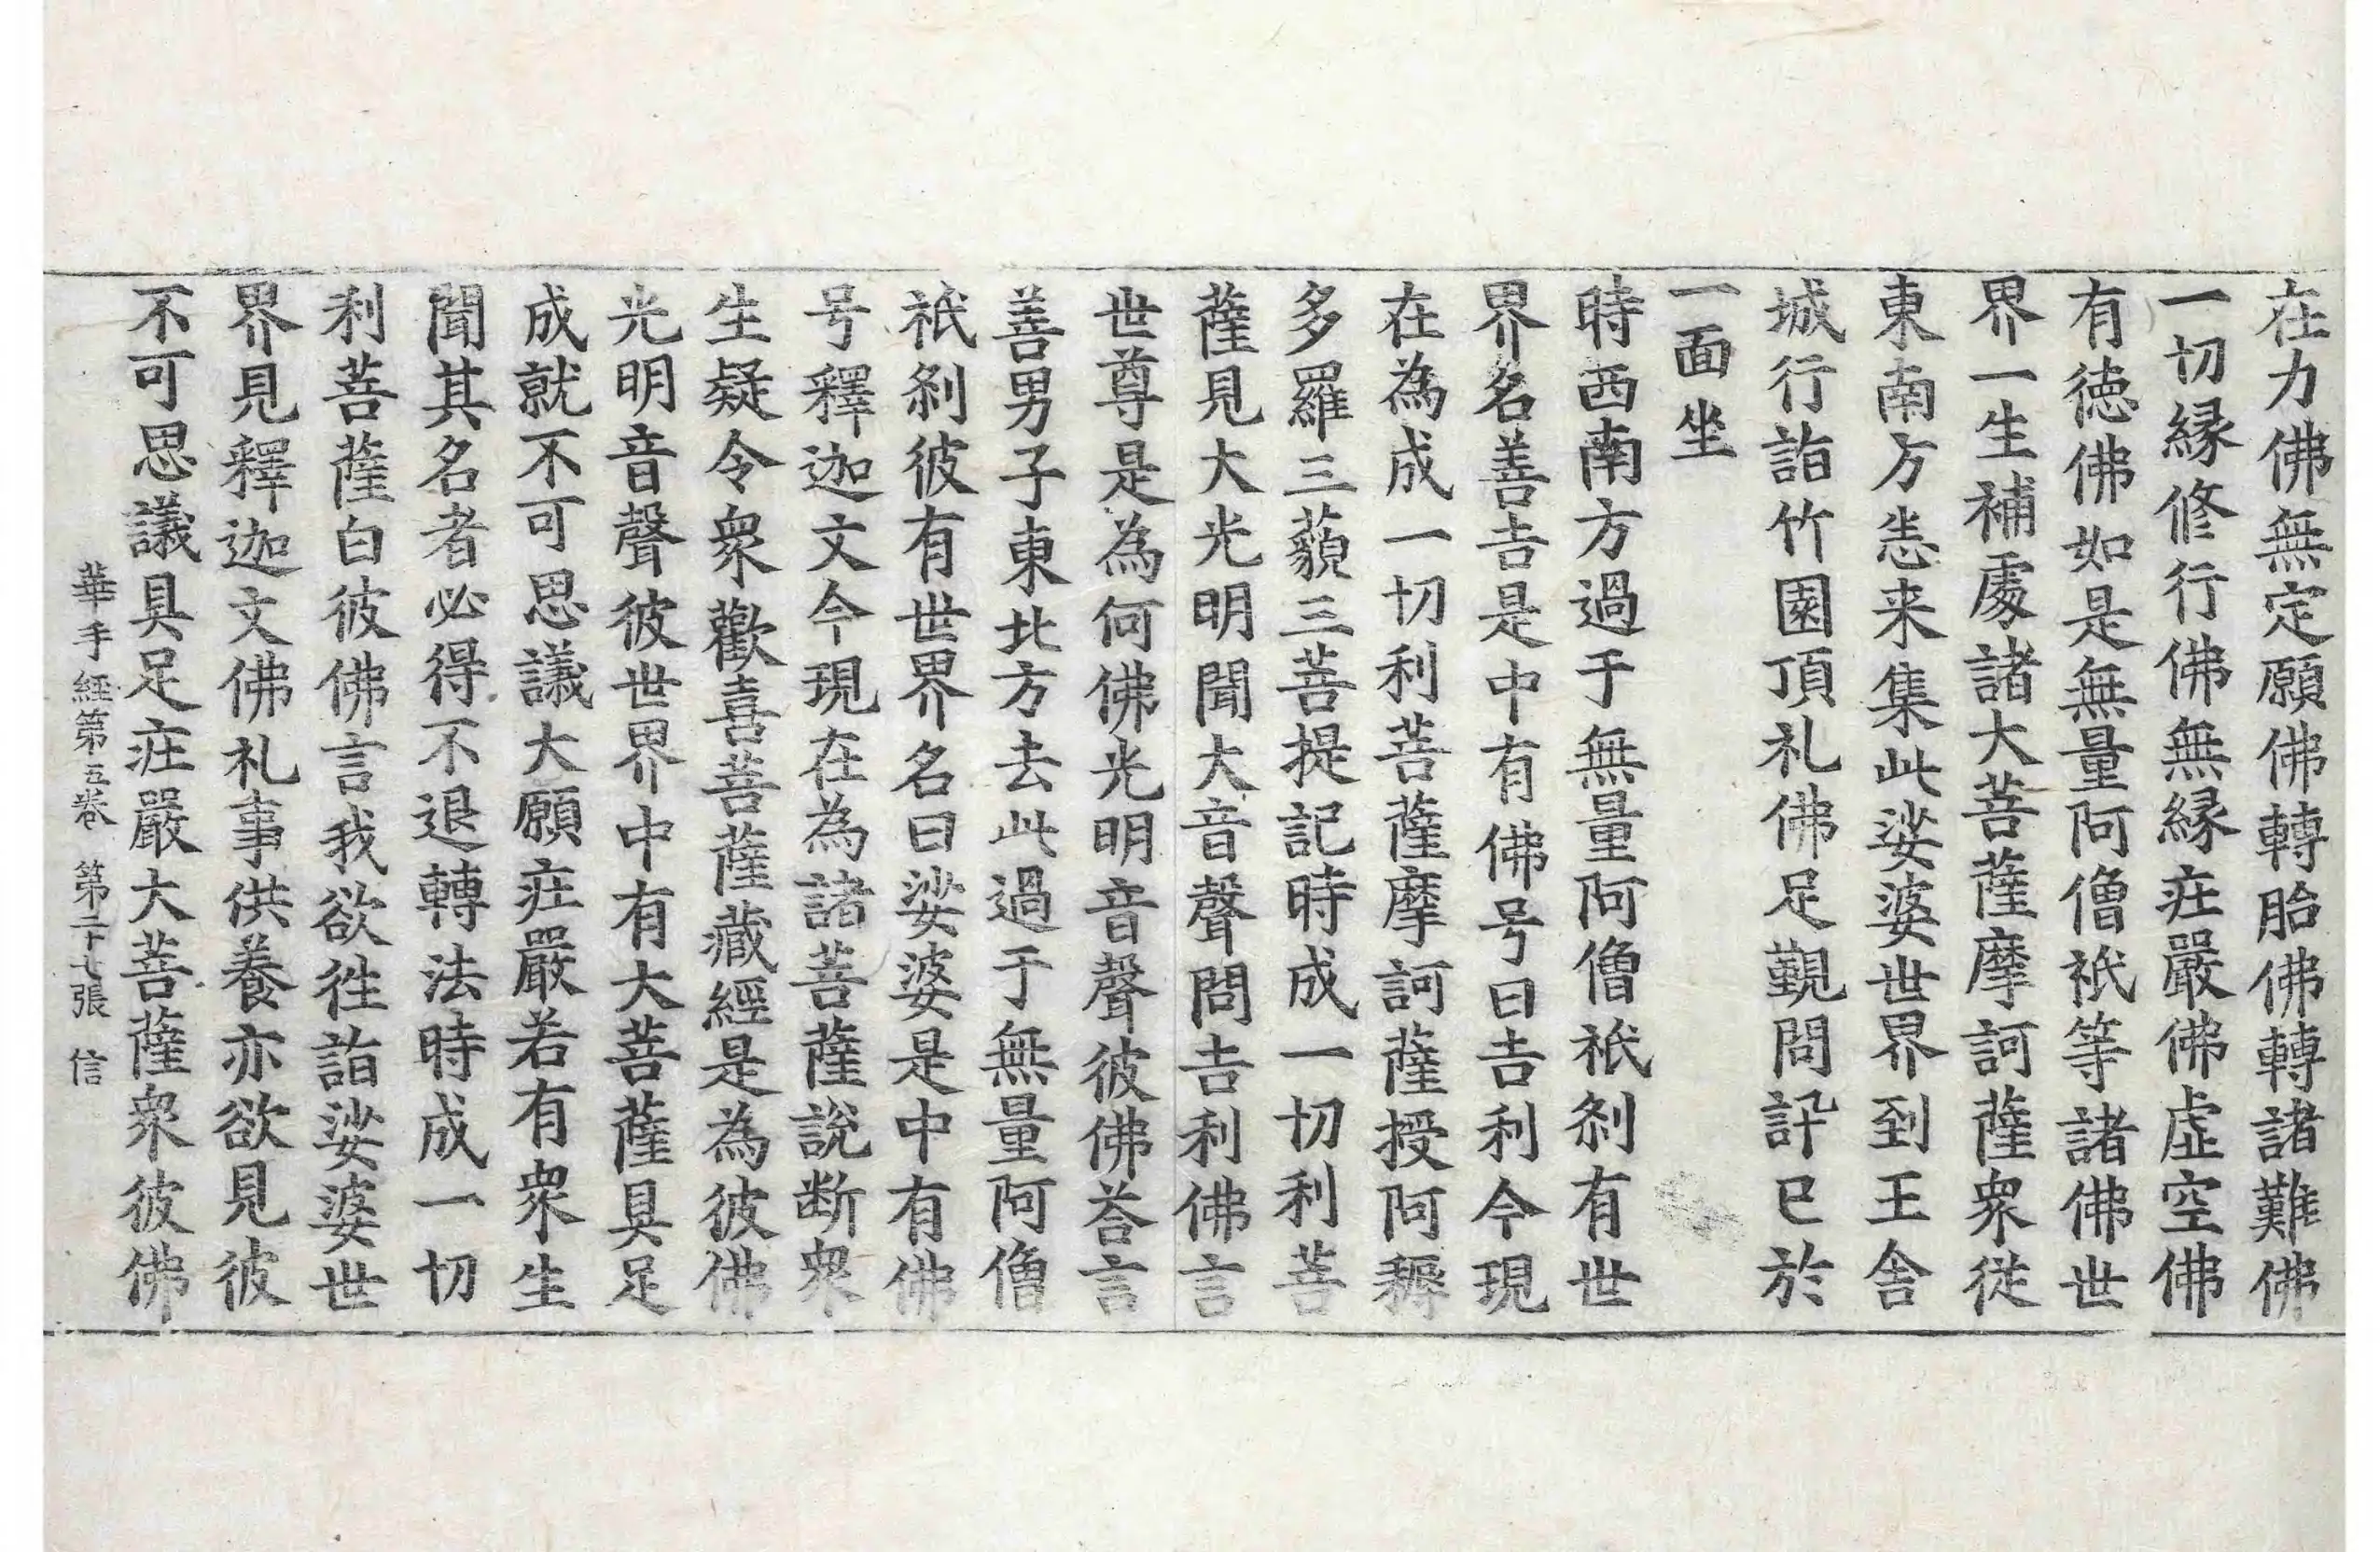 在力佛無定願佛轉胎佛轉諸難佛
一切縁修行佛無縁庄嚴佛虛空佛
有徳佛如是無量阿僧祇等諸佛世
界一生補處諸大菩薩摩訶薩衆從
東南方恙来集此娑婆世界到王舎
城行詣竹園頂礼佛足覲問訊已於
一面坐
時西南方過于無量阿僧祇刹有世
界名善吉是中有佛号曰吉利今現
在為成一切利菩薩摩訶薩授阿耨
多羅三藐三菩提記時成一切利菩
薩見大光明聞大音聲問吉利佛言
世尊是為何佛光明音聲彼佛荅言
善男子東北方去此過于無量阿僧
祇刹彼有世界名曰娑婆是中有佛
号釋迦文今現在為諸菩薩說断衆
生疑令衆歡喜菩薩藏經是為彼佛
光明音聲彼世界中有大菩薩具足
成就不可思議大願庄嚴若有衆生
聞其名者必得不退轉法時成一切
利菩薩白彼佛言我欲徃詣娑婆世
界見釋迦文佛礼事供養亦欲見彼
不可思議具足庄嚴大菩薩衆彼佛
華手經第五卷 第二十七張 信